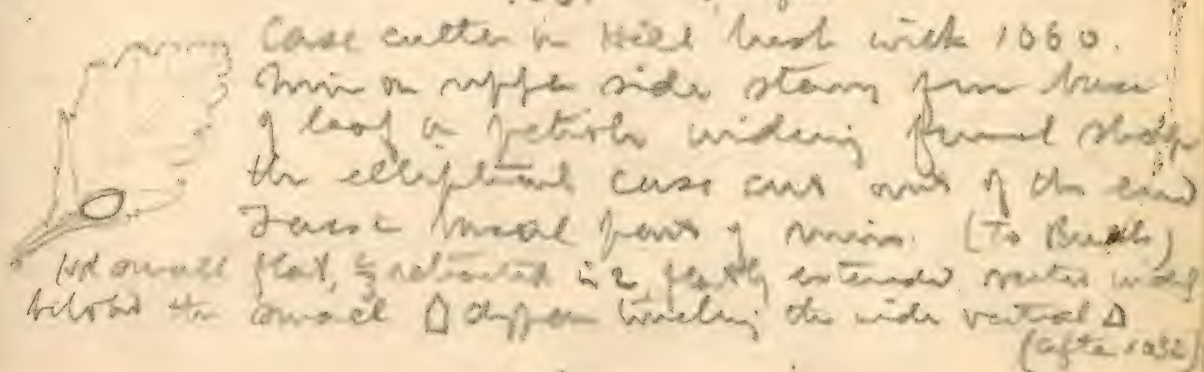 Case cutter in Hill bush with 1060.
Mine on upper side starting from base
of leaf or petiole widening funnel shape
the elliptical case cut out of the end
Frass basal part of mine. (To Busck)
Hd small flat, retracted in 2, partly extended
below the small the wide ventral Δ
(after 1032)